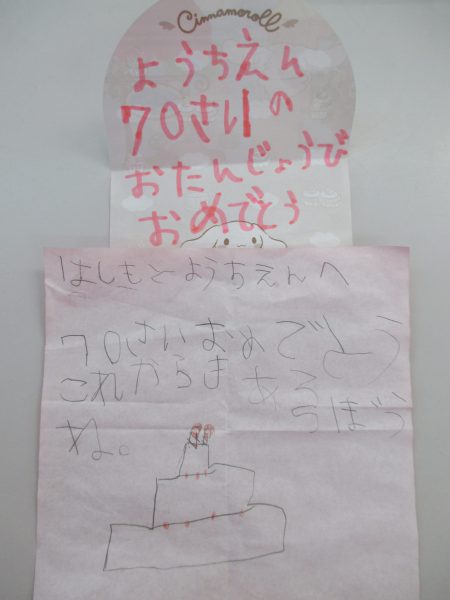 Cinnamoroll
ようちえん
70さいの
おたんじょうび
おめでとう
はしもとようちえんへ
70さいおめでとう
これからま あ ぼう
ね。